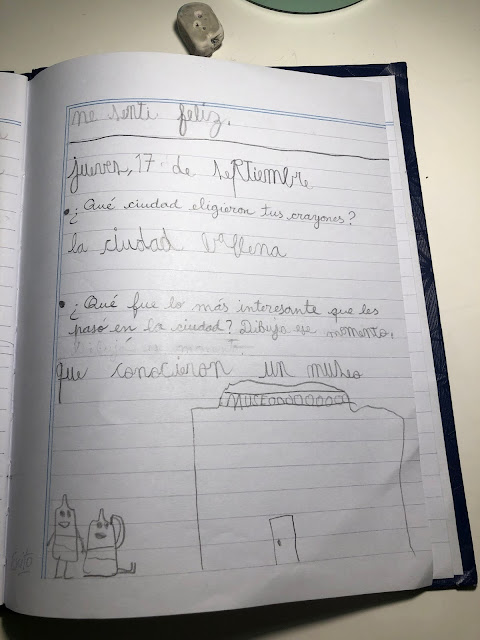 me sentí feliz.
jueves, 17 de septiembre
• ¿Qué ciudad eligieron tus crayones?
la ciudad
• ¿Qué fue lo más interesante que les
pasó en la ciudad? Dibuja ese momento.
que conocieron un museo